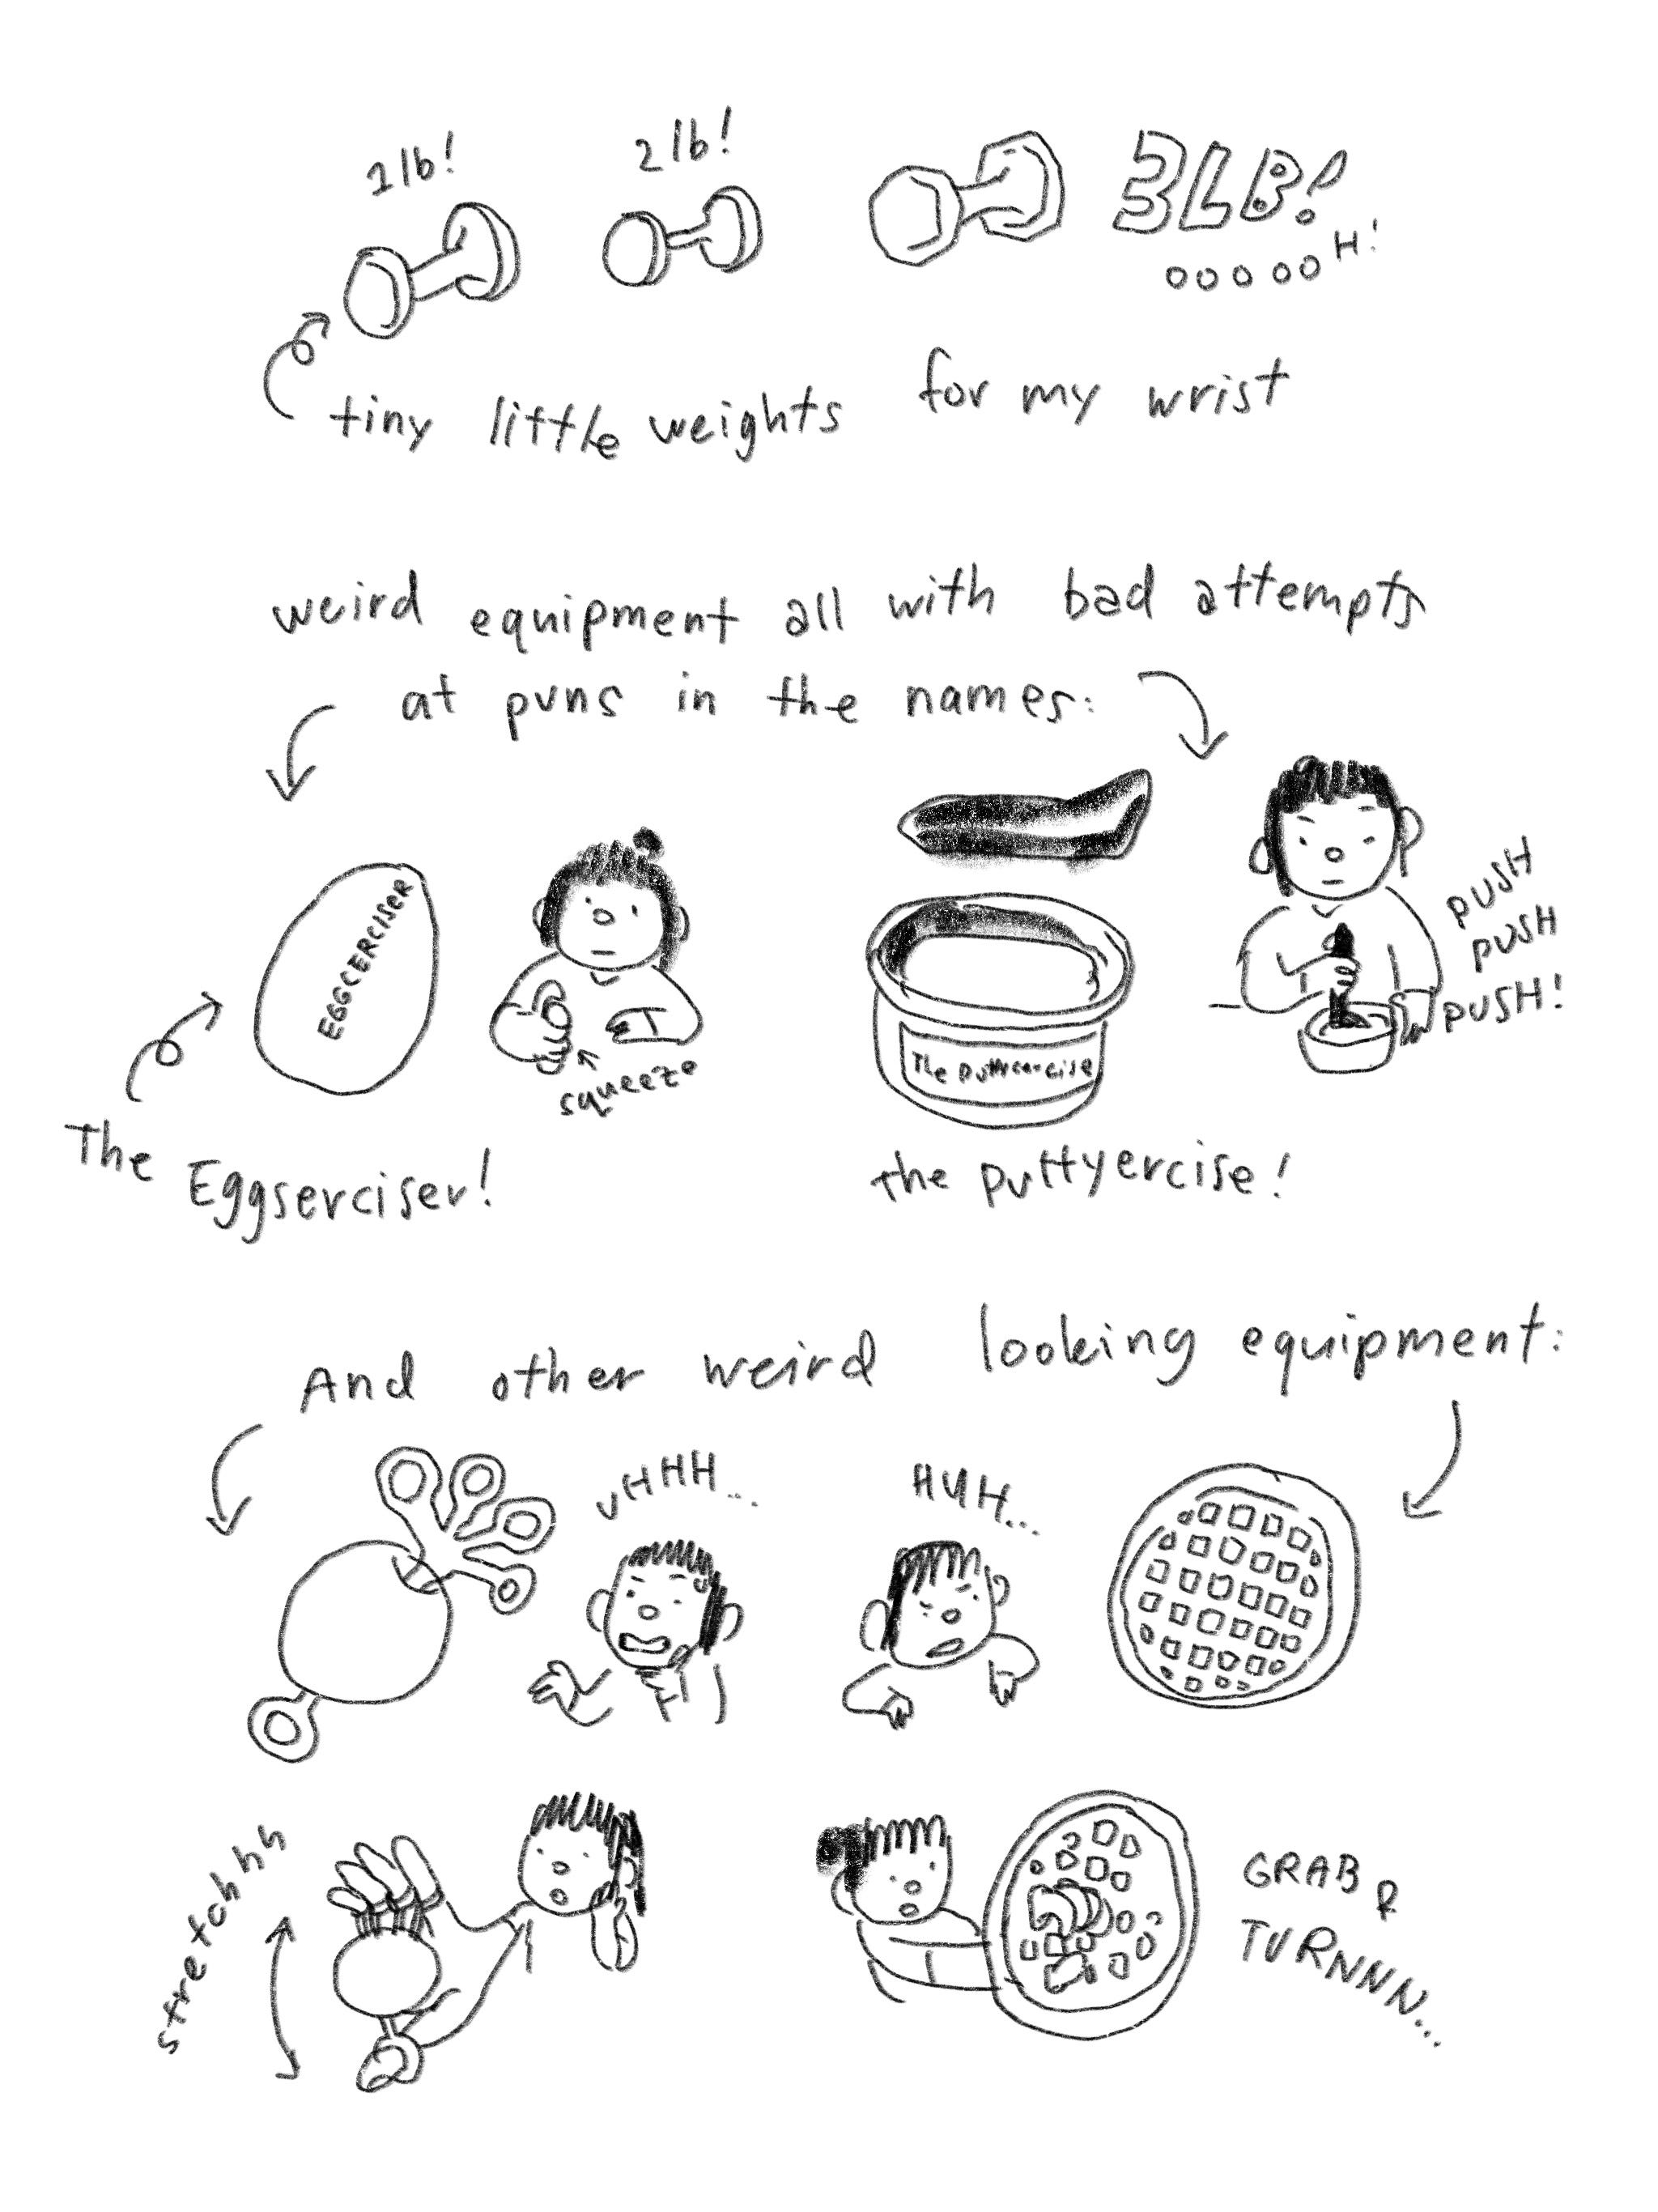 1 lb!
2 lb!
3LB!
oooooH!
tiny little weights for my wrist
weird equipment all with bad attempts
at puns in the names:
EGGCERCISER
squeeze
The Eggserciser!
The Puttycercise
PUSH
PUSH
PUSH!
the puttyercise!
And other weird looking equipment:
UHHH...
HUH...
stretchhh
GRAB &
TURNNNN...